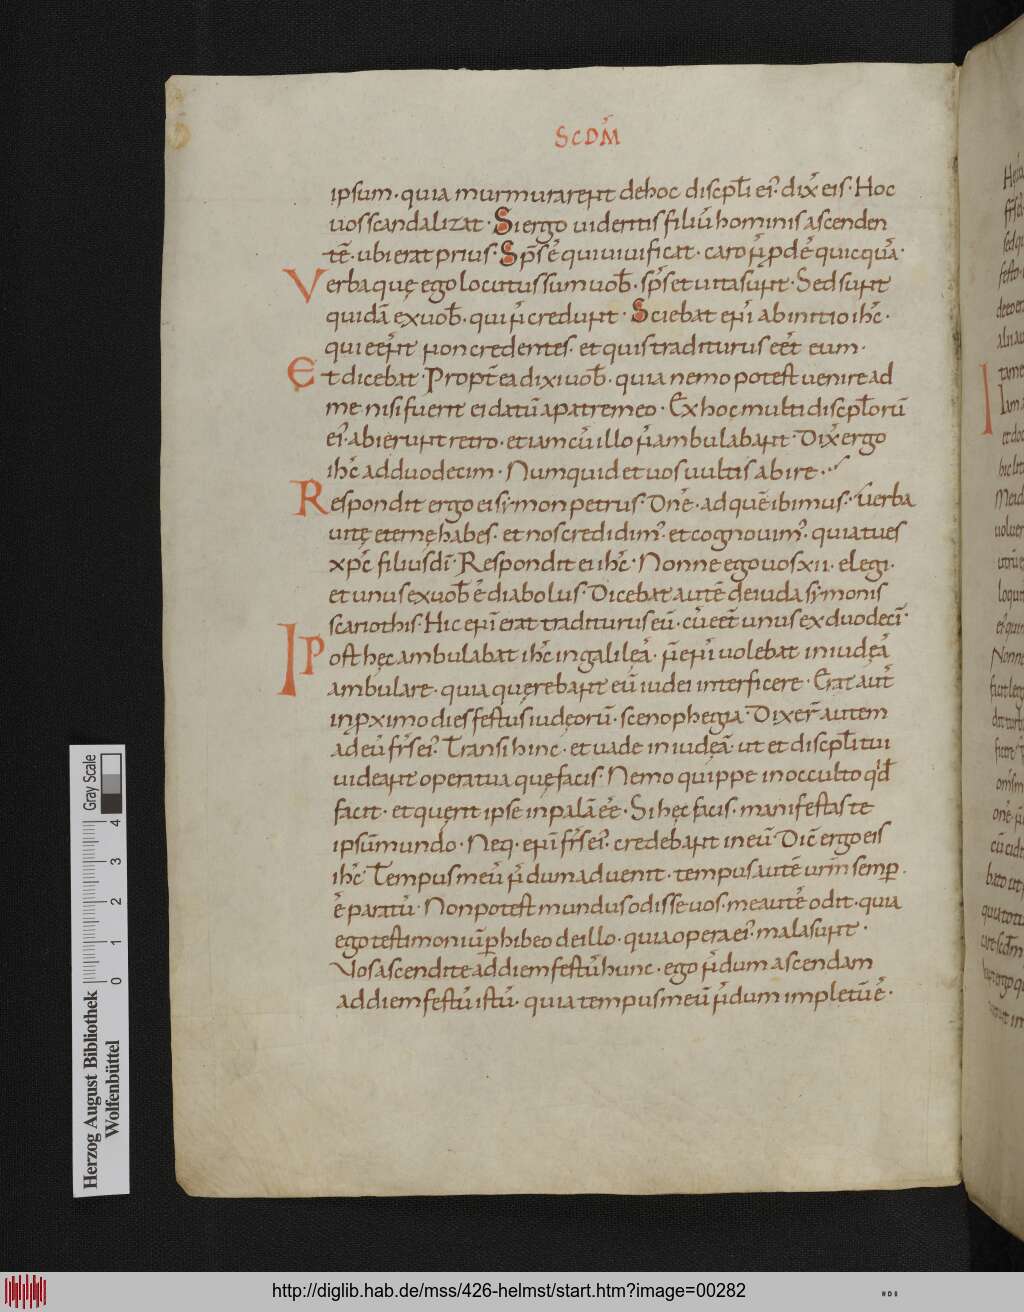 SCDM̅
ipsum · quia murmurarent dehoc discpl̅i ei᾽ · dix̅ eis · Hoc
uos scandalizat · Si ergo uideritis filiu̅ hominis ascenden
te̅ · ubi erat prius · Sp̅s e̅ qui uiuificat · caro n̅ p̱dẽ quicqua̅ ·
Verba quę ego locutus sum uob̅ · sp̅s et uita sunt · Sed sunt
quida̅ ex uob̅ · qui n̅ credunt · Sciebat eni̅ ab initio ih̅c ·
qui eẽnt non credentes · et quis traditurus eẽt eum ·
Et dicebat · Propt̅ea dixi uob̅ · quia nemo potest uenire ad
me nisi fuerit ei datu̅ a patre meo · Ex hoc multi discpl̅oru̅
ei᾽ · abierunt retro · et iam cu̅ illo n̅ ambulabant · Dix̅ ergo
ih̅c ad duodecim · Numquid et uos uultis abire ·
Respondit ergo ei symon petrus · Dn̅e · ad que̅ ibimus · Verba
uitę eternę habes · et nos credidim᾽ · et cognouim᾽ · quia tu es
xp̅c filius di̅ · Respondit ei ih̅c · Nonne ego uos xii · elegi ·
et unus ex uob̅ e̅ diabolus · Dicebat aute̅ de iuda symonis
scariothis · Hic eni̅ erat traditurus eu̅ · cu̅ eẽt unus ex duodeci̅ ·
IPost hęc ambulabat ih̅c in galilęa̅ · n̅ eni̅ uolebat in iudęa̅
ambulare · quia querebant eu̅ iudei interficere · Erat aut̅
in p̱ximo dies festus iudęoru̅ · scenophegia · Dixer̅ autem
ad eu̅ fr̅s ei᾽ · Transi hinc · et uade in iudęa̅ · ut et discpl̅i tui
uideant opera tua quę facis · Nemo quippe in occulto qd̅
facit · et querit ipse in pala̅ eẽ · Si hęc facis · manifestas te
ipsu̅ mundo · Neq · eni̅ fr̅s ei᾽ · credebant in eu̅ · Dic̅ ergo eis
ih̅c · Tempus meu̅ n̅dum aduenit · tempus aute̅ urm̅ semp̱ ·
e̅ paratu̅ · Non potest mundus odisse uos · me aute̅ odit · quia
ego testimoniu̅ p̱hibeo de illo · quia opera ei᾽ · mala sunt ·
Vos ascendite ad diem festu̅ hunc · ego n̅dum ascendam
ad diem festu̅ istu̅ · quia tempus meu̅ n̅dum impletu̅ e̅ ·
Gray Scale
0 1 2 3 4
Herzog August Bibliothek
Wolfenbüttel
http://diglib.hab.de/mss/426-helmst/start.htm?image=00282